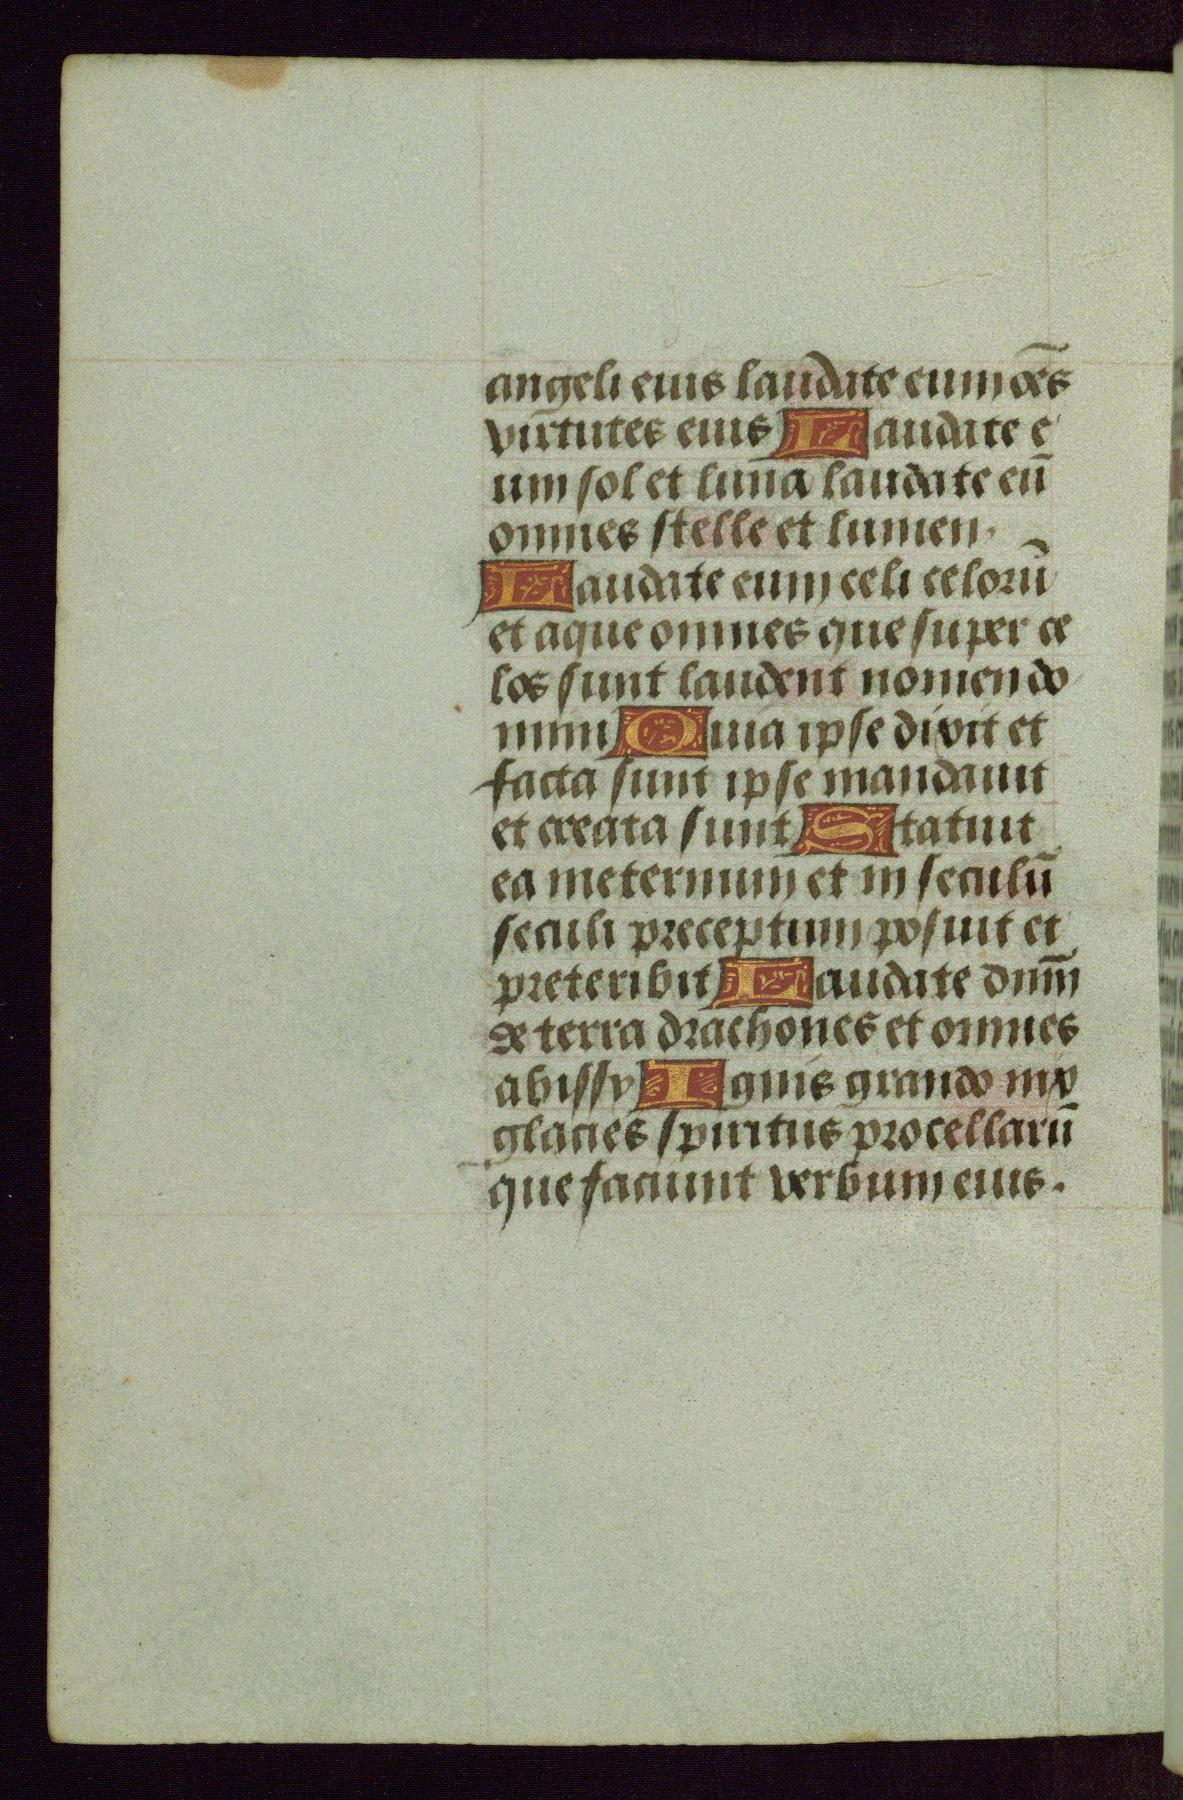 angeli eius laudate eum oēs
virtutes eius Laudate e
um sol et luna laudate eū
omnes stelle et lumen.
Laudate eum celi celorū
et aque omnes que super ce
los sunt laudent nomen do
mini Quia ipse dixit et
facta sunt ipse mandauit
et creata sunt Statuit
ea ineternum et in seculū
seculi preceptum posuit et
preteribit Laudate dnm̄
de terra drachones et omnes
abissy Ignis grando nix
glacies spiritus procellarū
que faciunt verbum eius.